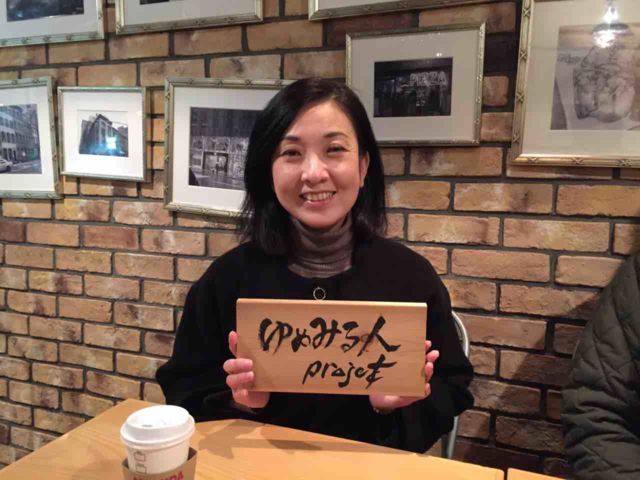 ゆめみる人
project